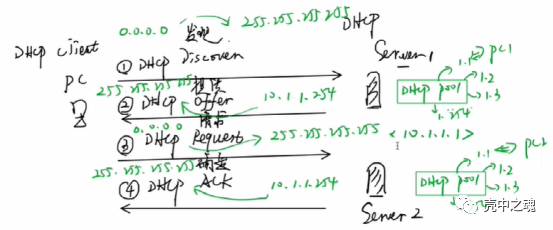 0.0.0.0 发现 255.255.255.255
DHCP
DHCP Client
PC
Server1
① DHCP Discover
255.255.255.255 提供
② DHCP Offer 10.1.1.254
0.0.0.0 请求
③ DHCP Request 255.255.255.255 <10.1.1.1>
255.255.255.255 确定
④ DHCP ACK 10.1.1.254
1.1 PC1
1.2
DHCP pool
1.3
1.254
Server2
1.1
1.2
DHCP pool
1.3
壳中之魂